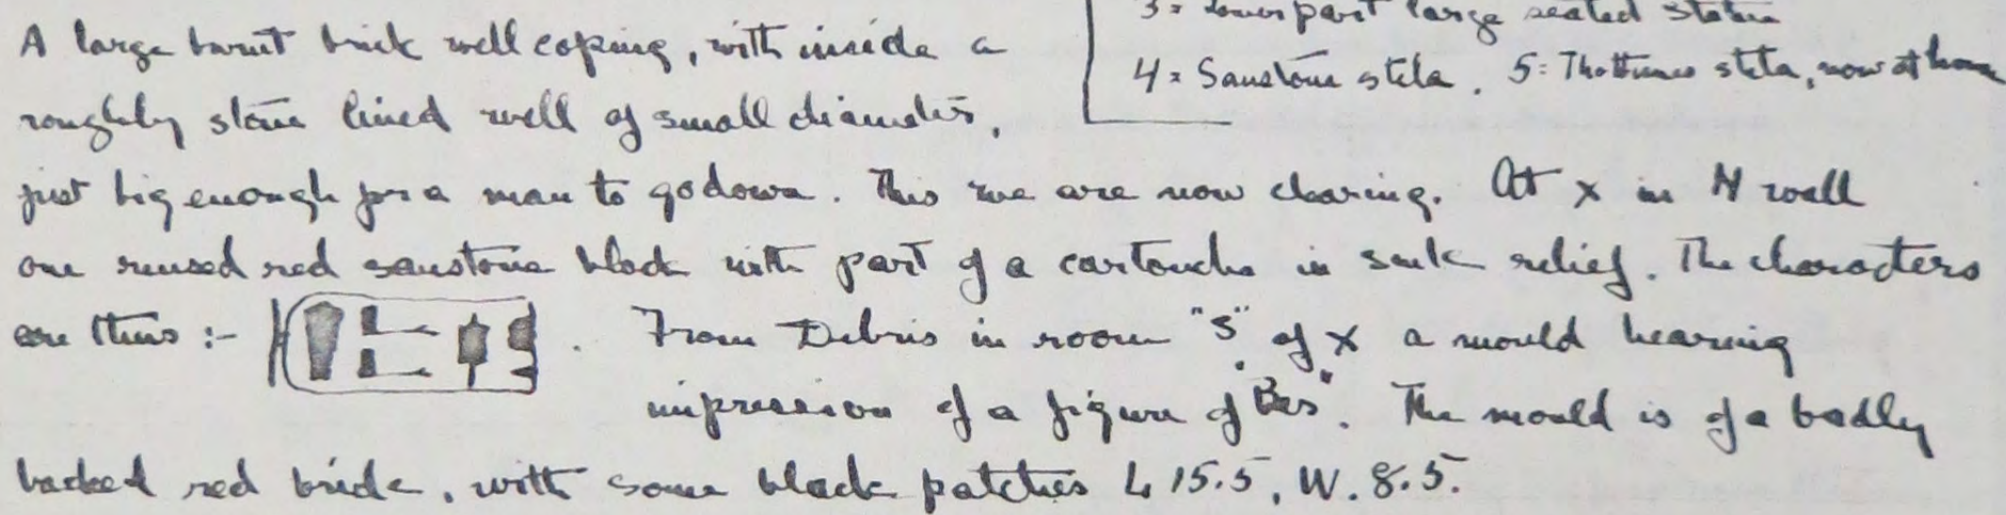 3 = Lower part large seated statue
4 = Sandstone stela. 5 = Thothmes stela, now at home
A large burnt brick well coping, with inside a
roughly stone lined well of small diameter,
just big enough for a man to go down. This we are now clearing. At x in N wall
one reused red sandstone block with part of a cartouche in sunk relief. The characters
are thus :- . From Debris in room "S" of X a mould bearing
impression of a figure of "Bes". The mould is of a badly
backed red brick, with some black patches L 15.5, W. 8.5.